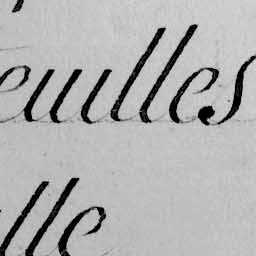 euilles
lle